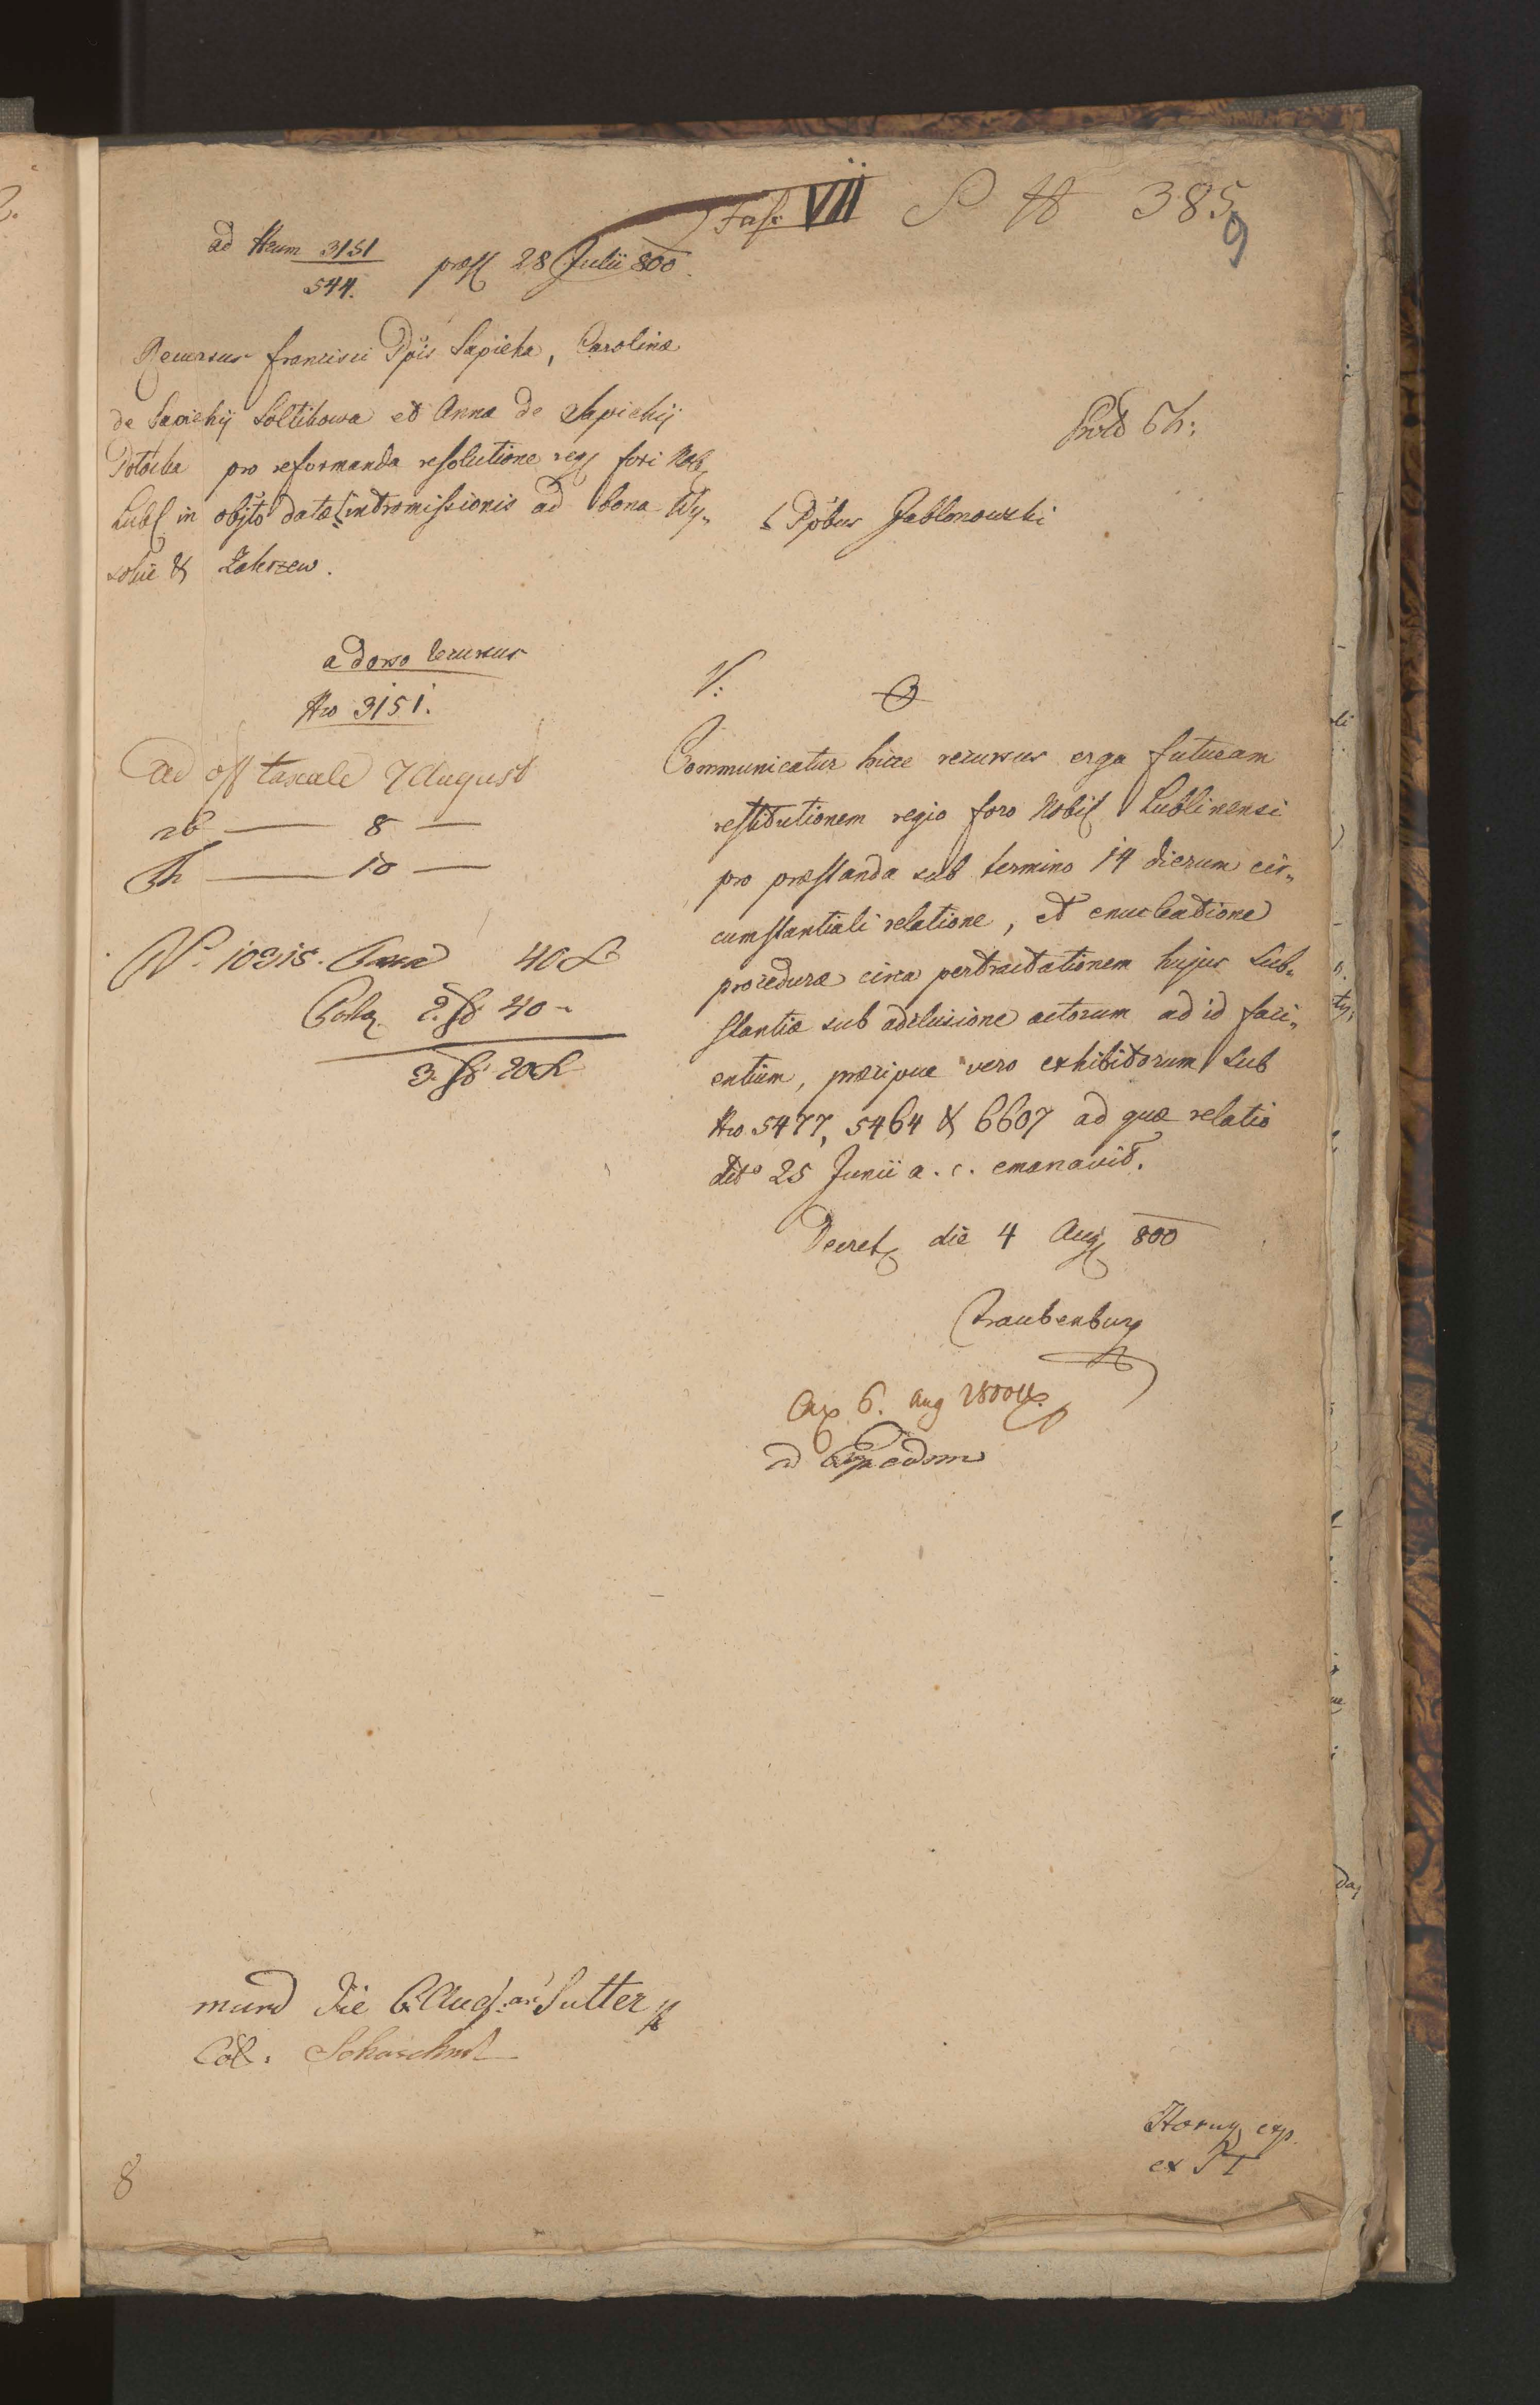 Fasc VII S N 385
9
ad Num 3151
544.
præs 28 Julii 800
Recursus Francisci Ppis Sapieha, Carolinæ
de Sapiehÿ Soltikowa et Annæ de Sapiehÿ
Potocka pro reformanda resolutione reg fori Nob
Lubl in objto datæ intromissionis ad bona Wy„
sokie & Zakrzew.
Ppbus Jablonowski
a dorso recursus
Nro 3151.
Ad off taxale 7 August
rb — 8 —
Th — 10 —
No. 10315. Taxa 40 x
2. f 40 -
3. f 20 x
V:
Communicatur hicce recursus erga futuram
restitutionem regio foro Nobil Lublinensi
pro præstanda sub termino 14 dierum cir„
cumstantiali relatione, et enucleatione
procedura circa pertractationem hujus Sub„
stantiæ sub adclusione actorum ad id faci„
entium, præcipue vero exhibitorum sub
Nro 5477, 5464 & 6607 ad quæ relatio
dto 25 Junii a. c. emanavit.
Decret die 4 Aug 800
Traubenburg
Exp 6. Aug 1800
ad Exp eadem
mund die 6 Aug: Sutter
Coll.
Horny exp.
ex PT
8